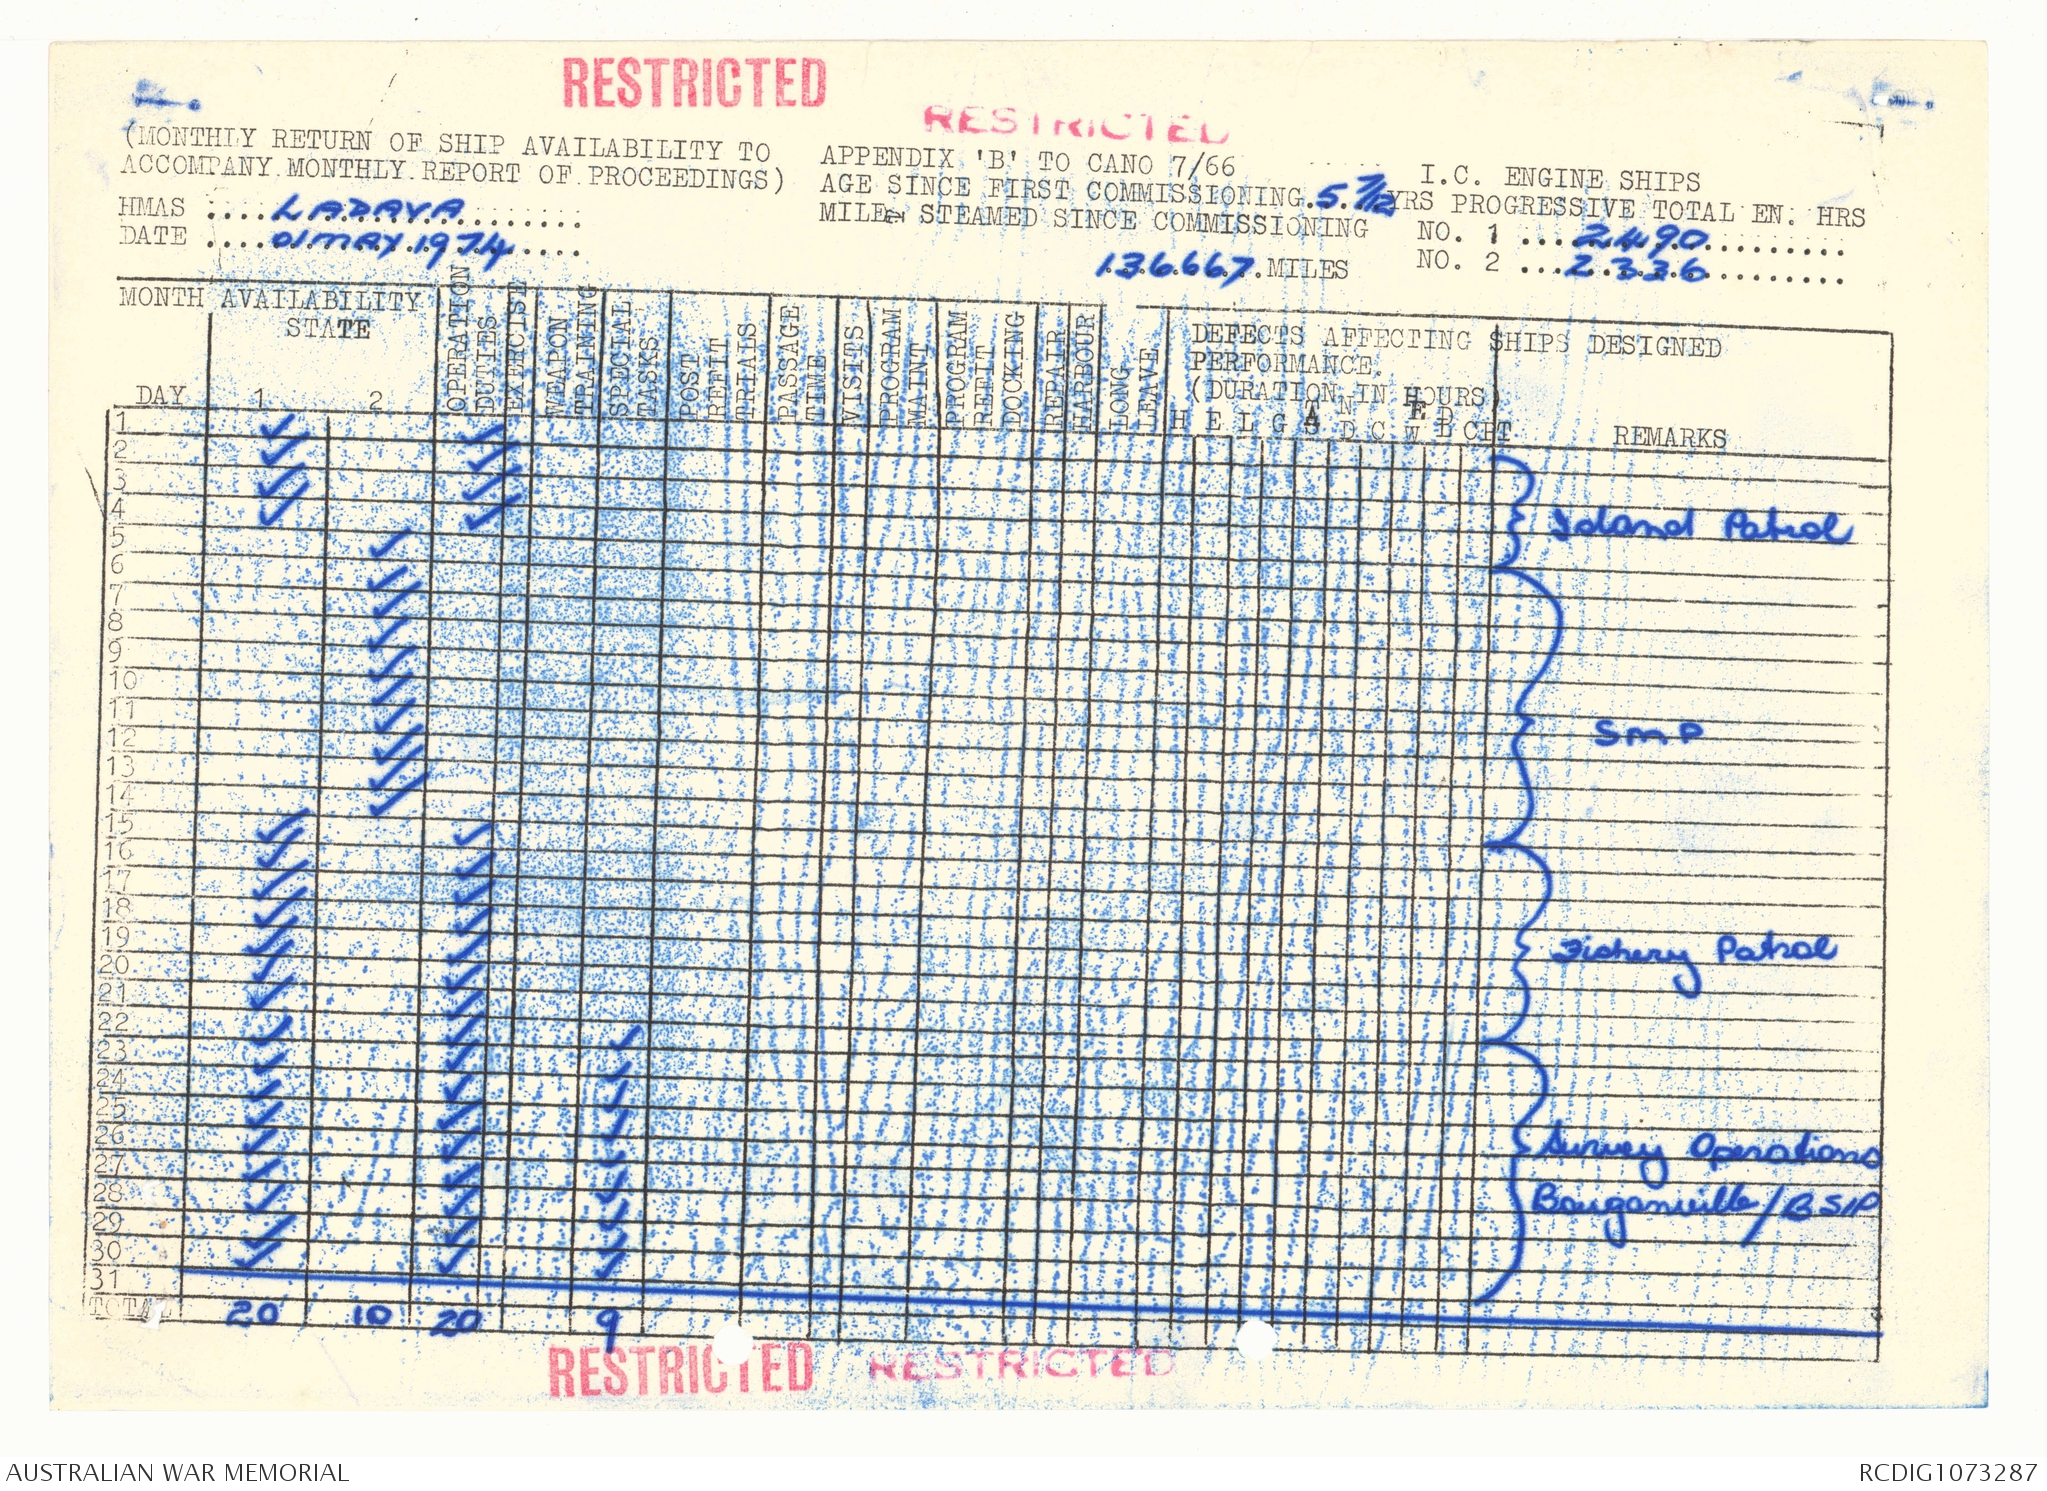 RESTRICTED
RESTRICTED
(MONTHLY RETURN OF SHIP AVAILABILITY TO
ACCOMPANY MONTHLY REPORT OF PROCEEDINGS)
HMAS ....LADAVA..........
DATE ....01 MAY 1974.....
APPENDIX 'B' TO CANO 7/66
AGE SINCE FIRST COMMISSIONING.5.7/12 YRS
MILES STEAMED SINCE COMMISSIONING
136.667.MILES
I.C. ENGINE SHIPS
PROGRESSIVE TOTAL EN. HRS
NO. 1 ....2490..........
NO. 2 ....2336..........
MONTH AVAILABILITY
STATE
DAY 1 2
OPERATION
DUTIES
EXERCISE
WEAPON
TRAINING
SPECIAL
TASKS
POST
REFIT
TRIALS
PASSAGE
TIME
VISITS
PROGRAM
MAINT
PROGRAM
REFIT
DOCKING
REPAIR
HARBOUR
LONG
LEAVE
DEFECTS AFFECTING SHIPS DESIGNED
PERFORMANCE.
(DURATION IN HOURS)
H E L G A S N D C E W D B CPT
REMARKS
1 ✓ ✓
2 ✓ ✓
3 ✓ ✓
4 ✓ ✓
Island Patrol
5 ✓
6 ✓
7 ✓
8 ✓
9 ✓
10 ✓
11 ✓
12 ✓
13 ✓
14 ✓
SMP
15 ✓ ✓
16 ✓ ✓
17 ✓ ✓
18 ✓ ✓
19 ✓ ✓
20 ✓ ✓
21 ✓ ✓
Fishery Patrol
22 ✓ ✓ ✓
23 ✓ ✓ ✓
24 ✓ ✓ ✓
25 ✓ ✓ ✓
26 ✓ ✓ ✓
27 ✓ ✓ ✓
28 ✓ ✓ ✓
29 ✓ ✓ ✓
30 ✓ ✓ ✓
Survey Operations
Bouganville/BSIP
31
TOTAL 20 10 20 9
RESTRICTED
RESTRICTED
AUSTRALIAN WAR MEMORIAL
RCDIG1073287